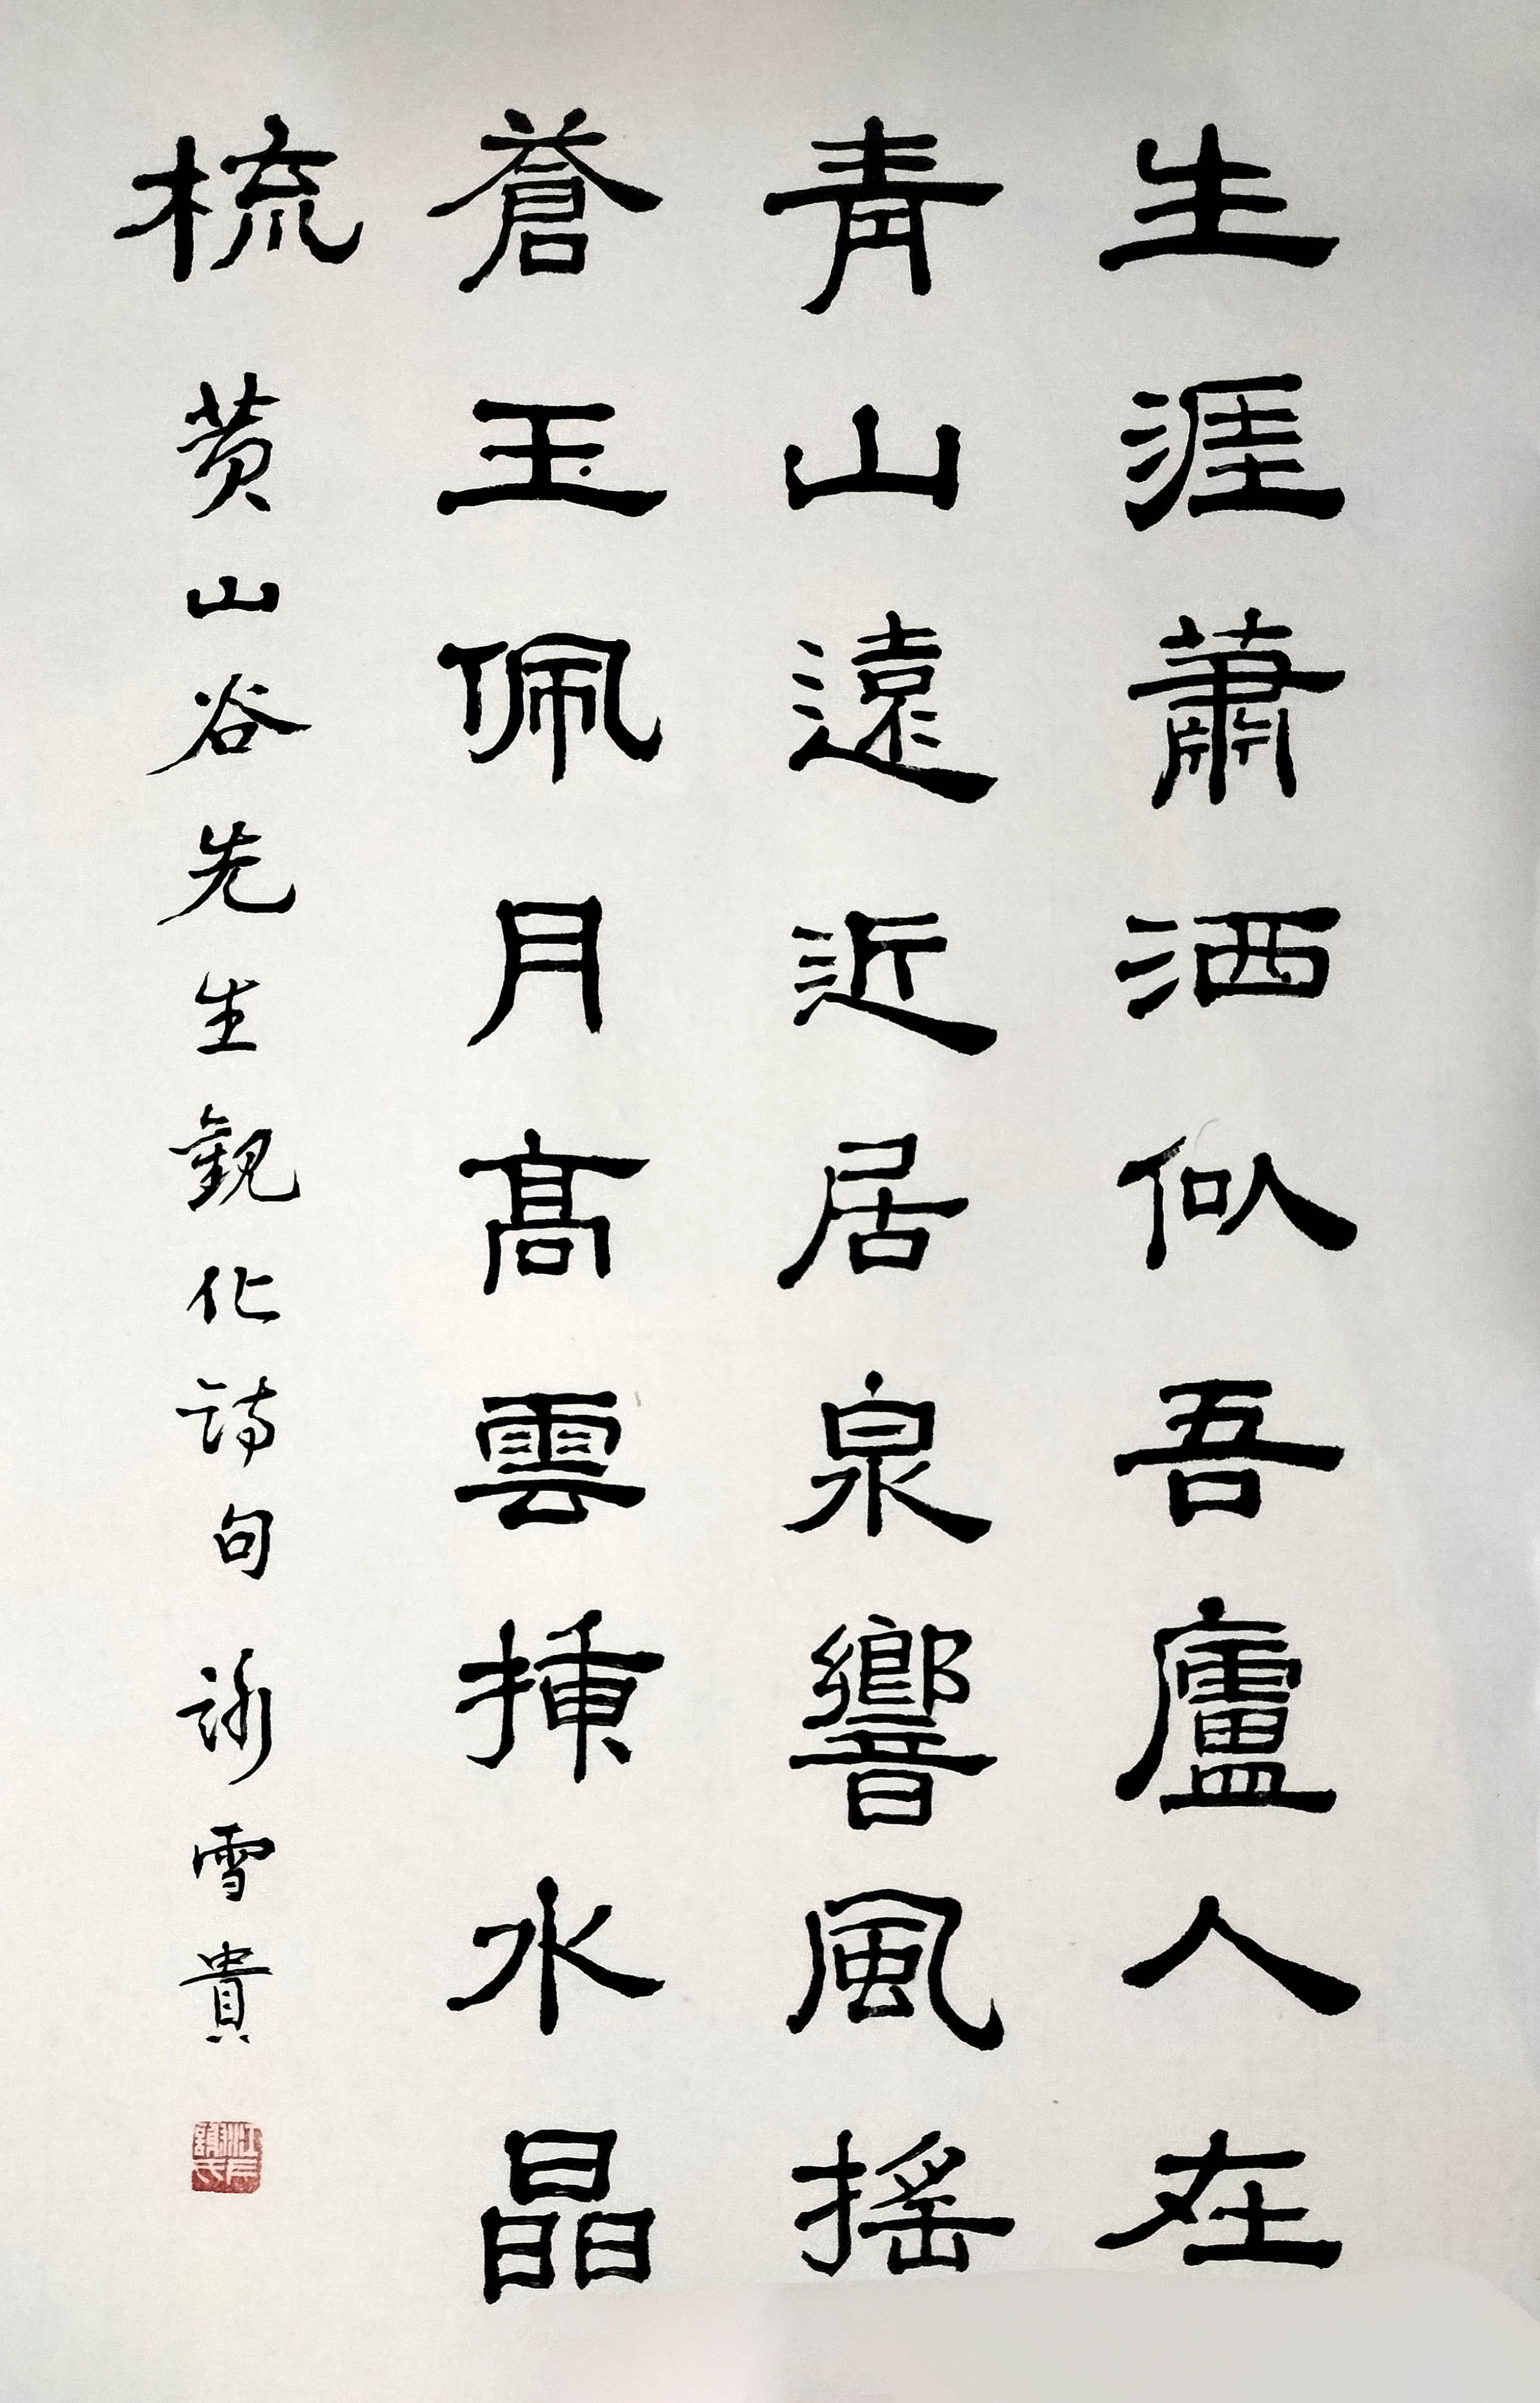 生涯蕭洒似吾廬人在
青山遠近居泉響風搖
蒼玉佩月高雲揷水晶
梳 黄山谷先生觀化詩句 謝雪貴